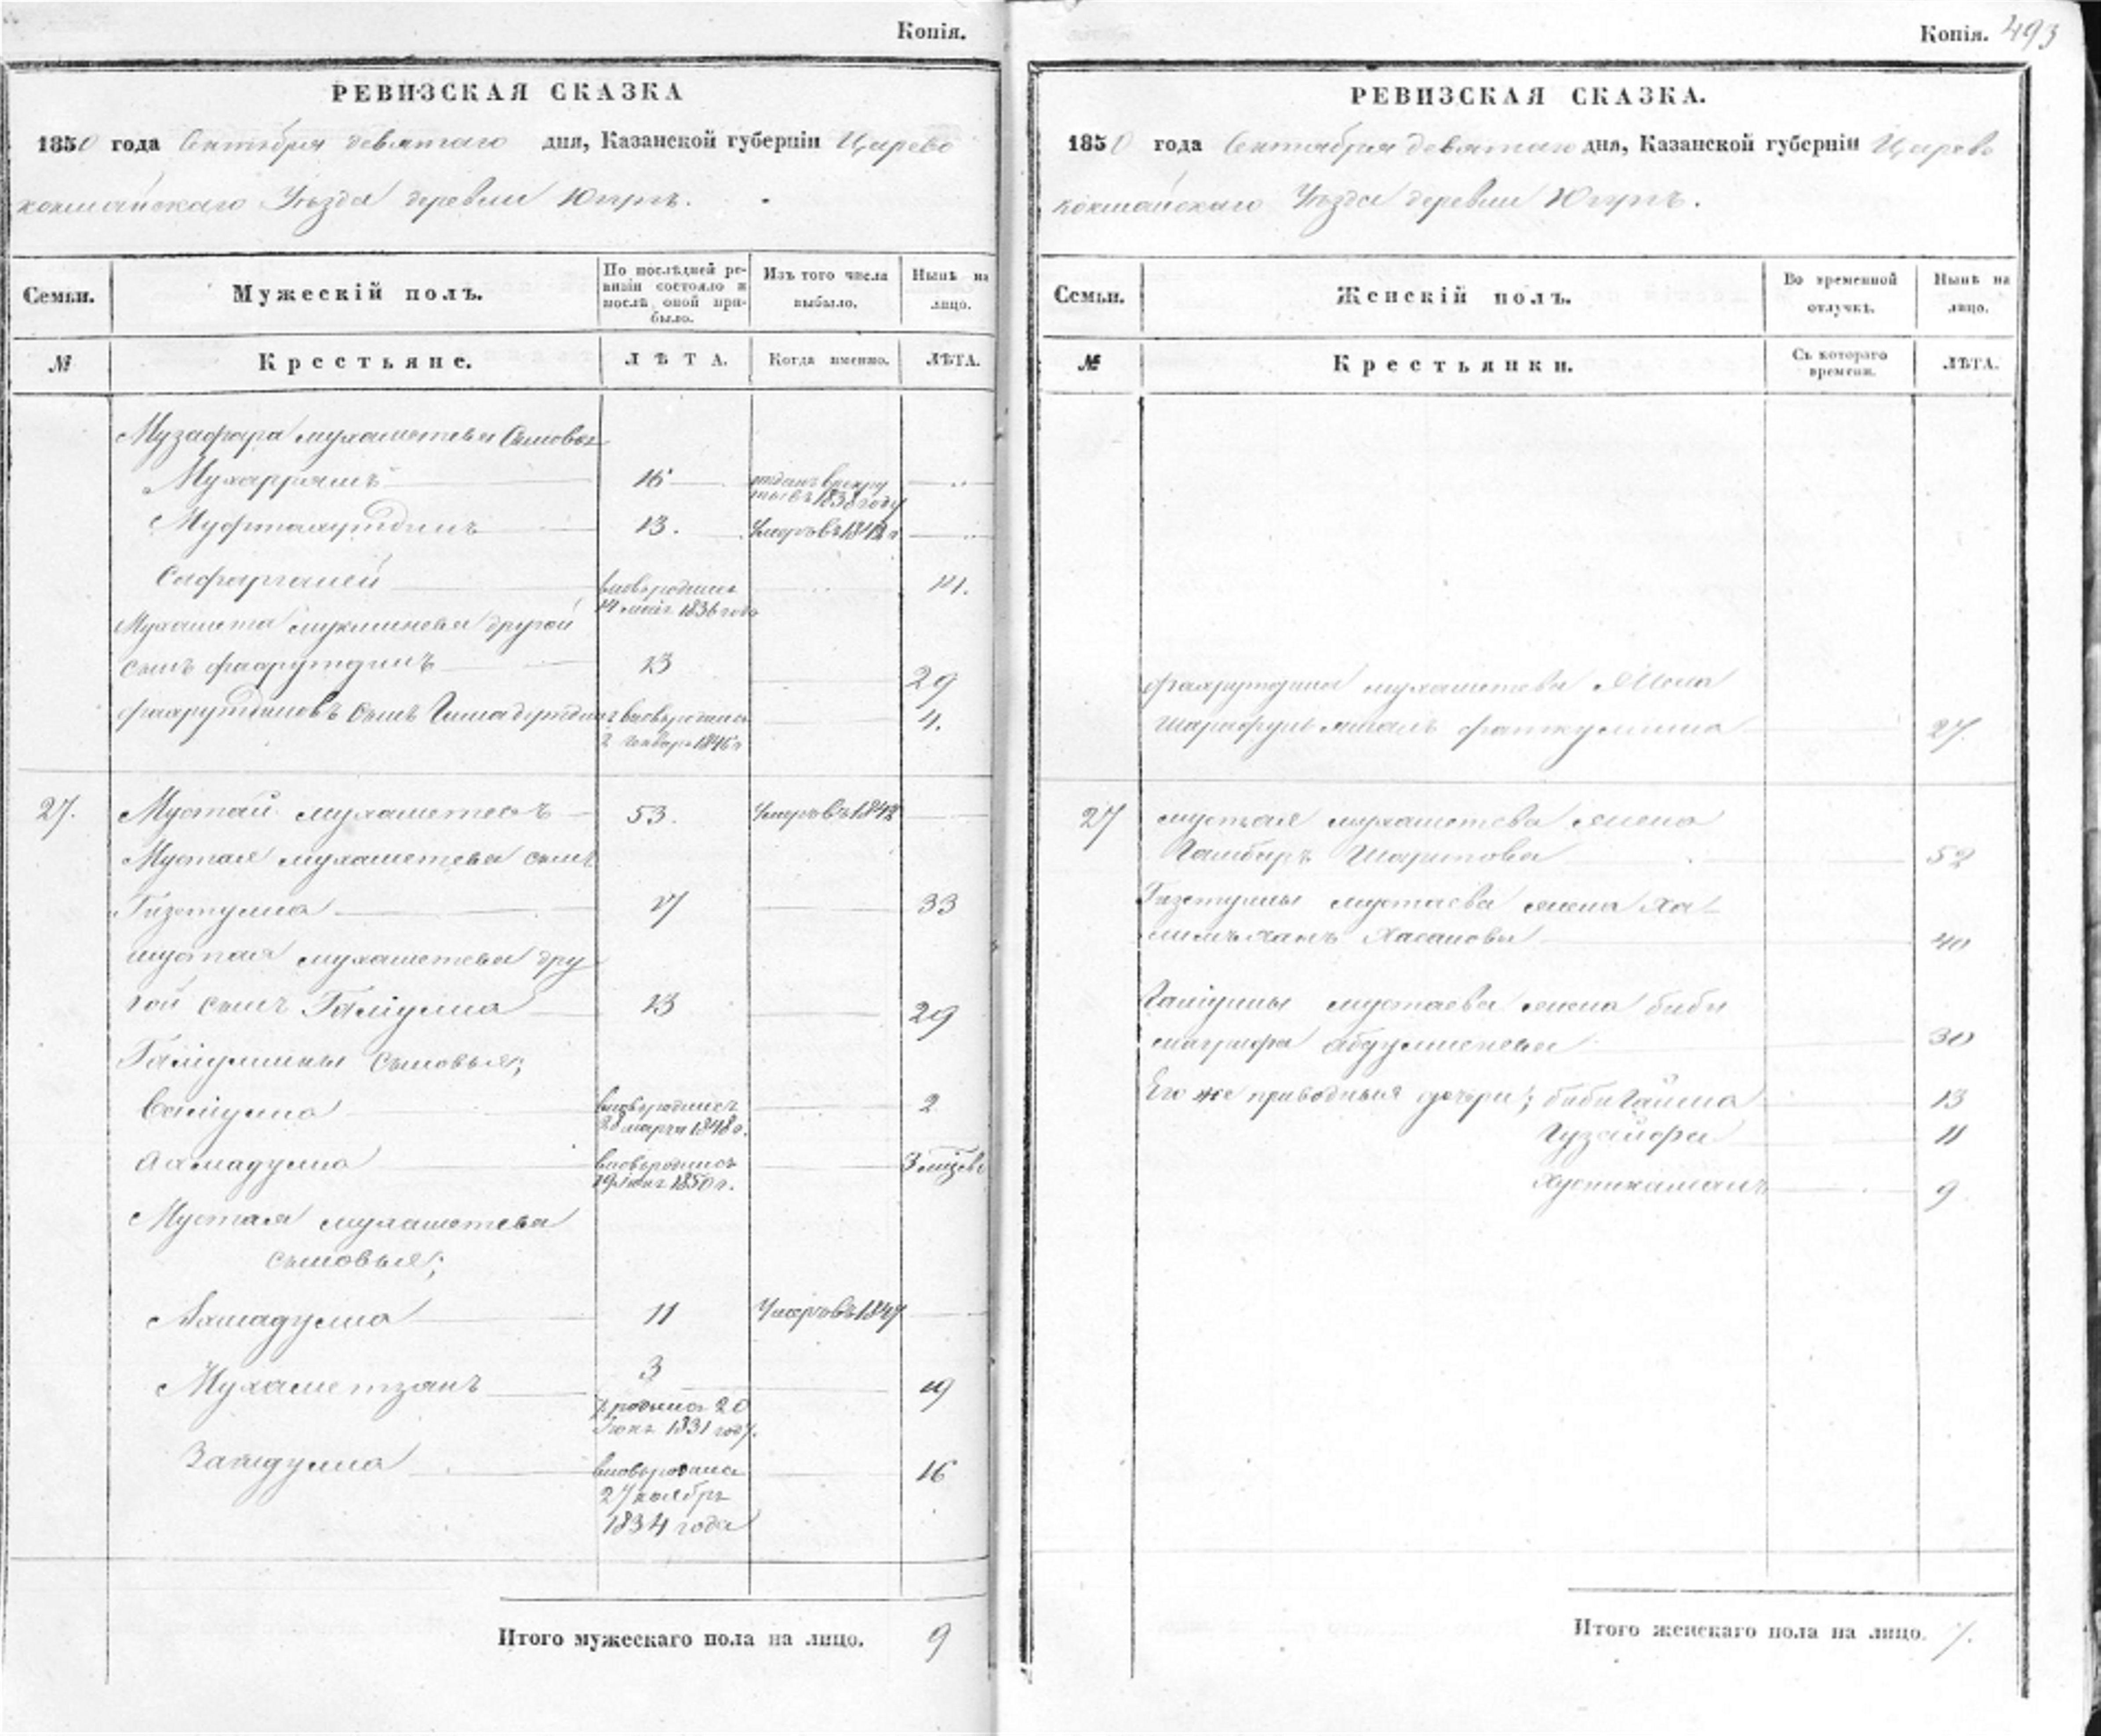 Копія.
РЕВИЗСКАЯ СКАЗКА
1850 года Сентября девятаго дня, Казанской губерніи Царево
кокшайскаго Уѣзда деревни Юпрѣ.
Семьи.
Мужескій полъ.
По послѣдней ре-
визіи состояло и
послѣ оной при-
было.
Изъ того числа
выбыло.
Нынѣ на
лицо.
№
Крестьяне.
ЛѢТА.
Когда именно.
ЛѢТА.
Музафара мухаметева Сыновья
Мухаррямъ 16 отданъ врекру
ты въ 1838 году
Муфтахутдинъ 13. Умеръ въ
Сафаргалей вновьродился 14.
14 маія 1836 года
Мухамета другой
сынъ фахрутдинъ 13 29
фахрутдиновъ сынъ вновьродился 4.
2 Генваря 1846 г
27. Мустай мухаметевъ 53. Умеръ въ
Мустая мухаметева сынъ
Гизетулла 17 33
мустая мухаметева дру
гой сынъ Галiулла 13 29
Галiуллины сыновья;
Саліулла вновьродился 2
28 марта 1848 г.
Ахмадулла вновьродился 3 мѣсяца
1850 г.
Мустая мухаметева
сыновья;
Ахмадулла 11 Умеръ въ 1847
Мухаметзянъ 3 19
родился 20
1831 году.
Загидулла вновьродился 16
27 ноября
1834 года
Итого мужескаго пола на лицо. 9
Копія. 493
РЕВИЗСКАЯ СКАЗКА.
1850 года Сентября девятаго дня, Казанской губерніи Царево
кокшайскаго Уѣзда деревни Юпрѣ.
Семьи.
Женскій полъ.
Во временной
отлучкѣ.
Нынѣ на
лицо.
№
Крестьянки.
Съ котораго
времени.
ЛѢТА.
фахрутдина мухаметева жена
фаткуллина 27.
27 мустая мухаметева жена
Гамбаръ Шарипова 52
Гизетуллы мустаева жена Ха-
Хасанова 40
Галіуллы мустаева жена биби
40 30
Его же приводныя дочери; бибигайша 13
Гузайфа 11
9
Итого женскаго пола на лицо. 7.